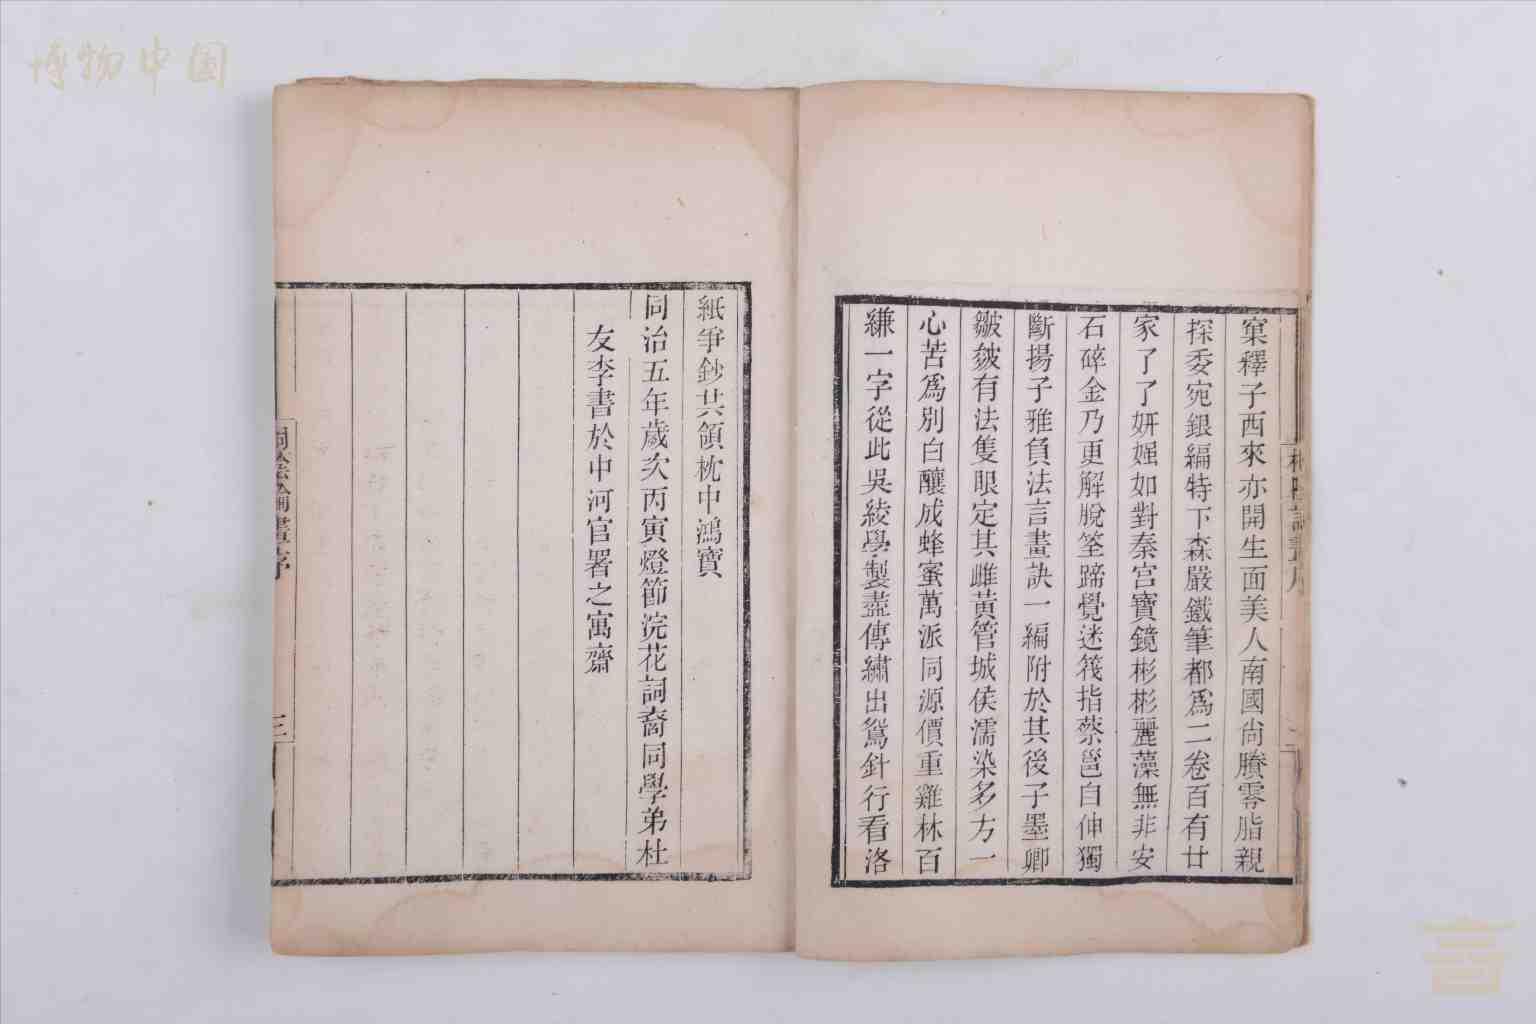 博物中国
窠釋子西來亦開生面美人南國尙賸零脂親
探委宛銀編特下森嚴鐵筆都爲二卷百有廿
家了了妍媸如對秦宮寶鏡彬彬麗藻無非安
石碎金乃更解脫筌蹄覺迷筏指蔡邕自伸獨
斷揚子雅負法言畫訣一編附於其後子墨卿
皺皴有法隻眼定其雌黃管城侯濡染多方一
心苦爲別白釀成蜂蜜萬派同源價重雞林百
縑一字從此吳綾學製盡傳繡出鴛針行看洛
紙爭鈔共領枕中鴻寶
同治五年歲次丙寅燈節浣花詞裔同學弟杜
友李書於中河官署之寓齋
桐陰論畫序
三